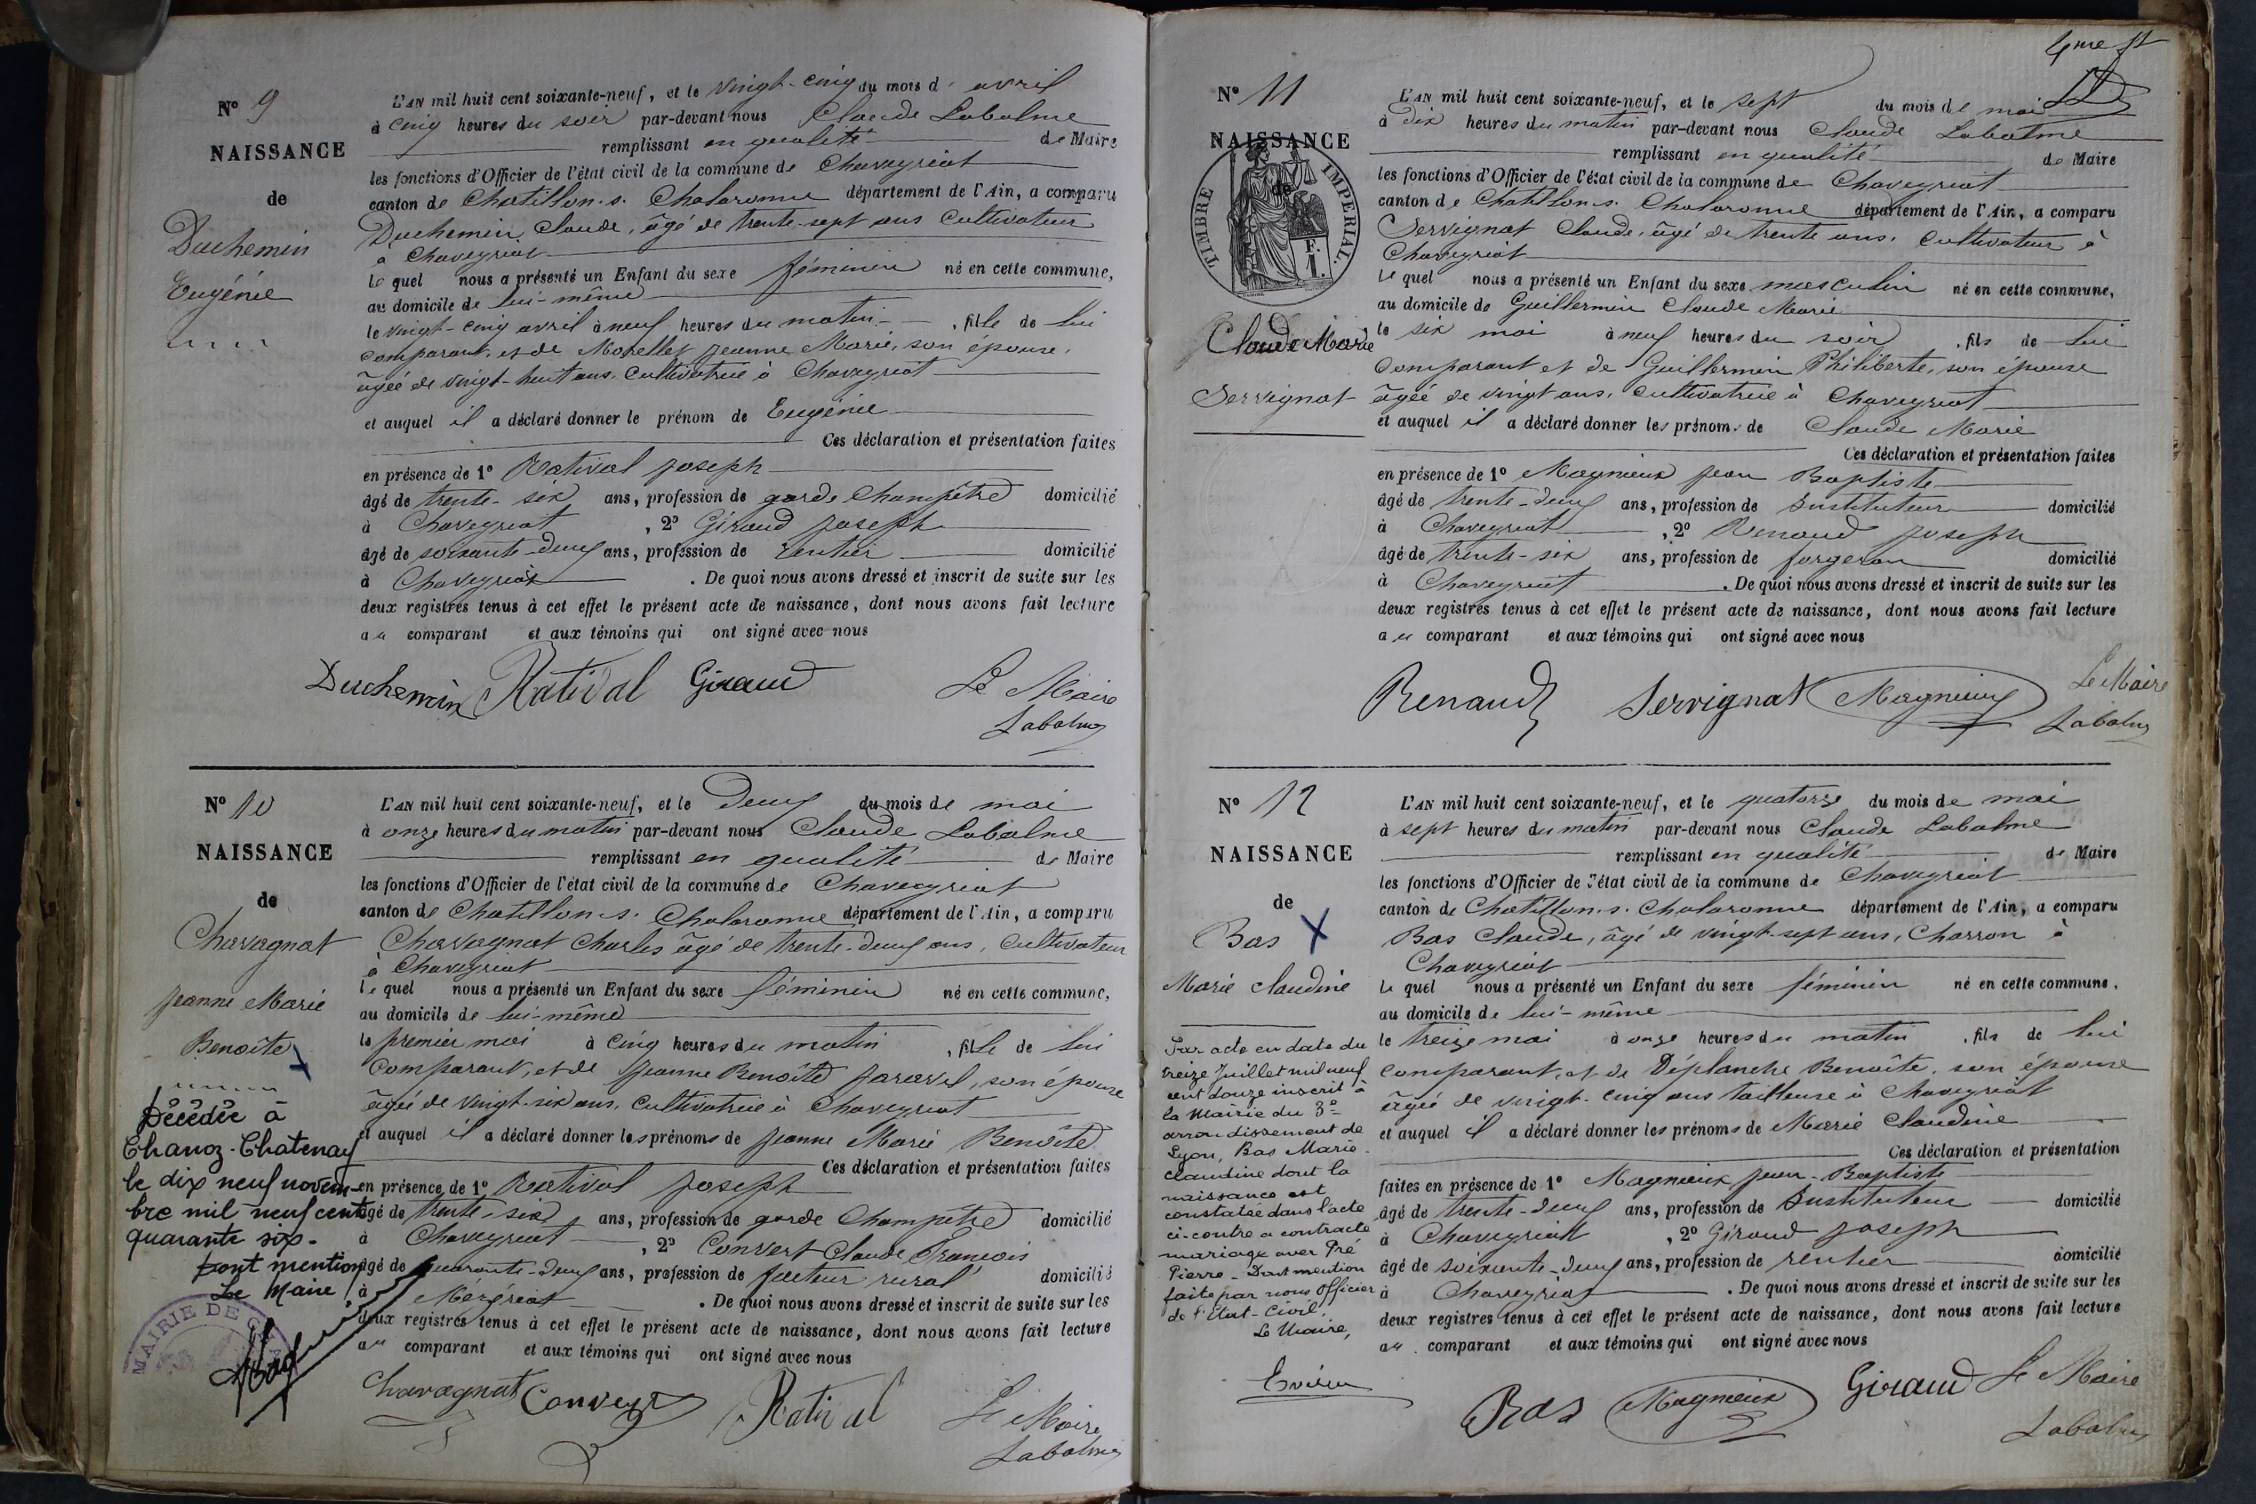 N° 9
NAISSANCE
de
Duchemin
Eugénie
L'AN mil huit cent soixante-neuf, et le vingt-cinq du mois d'avril
à cinq heures du soir par-devant nous Claude Labalme
remplissant en qualité de Maire
les fonctions d'Officier de l'état civil de la commune de Chaveyriat
canton de Chatillon-s-Chalaronne département de l'Ain, a comparu
Duchemin Claude, âgé de trente-sept ans Cultivateur
à Chaveyriat
lequel nous a présenté un Enfant du sexe féminin né en cette commune,
au domicile de lui-même
le vingt-cinq avril à neuf heures du matin, fille de lui
comparant, et de Morellet Jeanne Marie, son épouse,
âgée de vingt-huit ans, Cultivatrice à Chaveyriat
et auquel il a déclaré donner le prénom de Eugénie
Ces déclaration et présentation faites
en présence de 1° Rativial Joseph
âgé de trente-six ans, profession de garde Champêtre domicilié
à Chaveyriat, 2° Giraud Joseph
âgé de soixante-deux ans, profession de rentier domicilié
à Chaveyriat. De quoi nous avons dressé et inscrit de suite sur les
deux registres tenus à cet effet le présent acte de naissance, dont nous avons fait lecture
au comparant et aux témoins qui ont signé avec nous
Duchemin Rativial Giraud Le Maire
Labalme
N° 10
NAISSANCE
de
Chavagnat
Jeanne Marie
Benoîte
Décédée à
Chanoz-Chatenay
le dix neuf novem-
bre mil neuf cent
quarante six.
Dont mention
Le Maire
MAIRIE DE
L'AN mil huit cent soixante-neuf, et le Deux du mois de mai
à onze heures du matin par-devant nous Claude Labalme
remplissant en qualité de Maire
les fonctions d'Officier de l'état civil de la commune de Chaveyriat
canton de Chatillon-s-Chalaronne département de l'Ain, a comparu
Chavagnat Charles âgé de trente-deux ans, Cultivateur
à Chaveyriat
lequel nous a présenté un Enfant du sexe féminin né en cette commune,
au domicile de lui-même
le premier mai à cinq heures du matin, fille de lui
Comparant, et de Jeanne Benoîte Paravel, son épouse
âgée de vingt-six ans, Cultivatrice à Chaveyriat
et auquel il a déclaré donner les prénoms de Jeanne Marie Benoîte
Ces déclaration et présentation faites
en présence de 1° Rativial Joseph
âgé de trente-six ans, profession de garde Champêtre domicilié
à Chaveyriat, 2° Convert Claude François
âgé de quarante-deux ans, profession de facteur rural domicilié
à Mézériat. De quoi nous avons dressé et inscrit de suite sur les
deux registres tenus à cet effet le présent acte de naissance, dont nous avons fait lecture
au comparant et aux témoins qui ont signé avec nous
Chavagnat Convert Rativial Le Maire
Labalme
4me ft
N° 11
NAISSANCE
de
TIMBRE IMPERIAL.
1 F.
Claude Marie
Servignat
L'AN mil huit cent soixante-neuf, et le sept du mois de mai
à dix heures du matin par-devant nous Claude Labalme
remplissant en qualité de Maire
les fonctions d'Officier de l'état civil de la commune de Chaveyriat
canton de Chatillon-s-Chalaronne département de l'Ain, a comparu
Servignat Claude, âgé de trente ans, Cultivateur à
Chaveyriat
lequel nous a présenté un Enfant du sexe masculin né en cette commune,
au domicile de Guillermin Claude Marie
le six mai à neuf heures du soir, fils de lui
Comparant et de Guillermin Philiberte, son épouse
âgée de vingt ans, Cultivatrice à Chaveyriat
et auquel il a déclaré donner les prénoms de Claude Marie
Ces déclaration et présentation faites
en présence de 1° Magnieux Jean Baptiste
âgé de trente-deux ans, profession de Instituteur domicilié
à Chaveyriat, 2° Renaud Joseph
âgé de trente-six ans, profession de forgeron domicilié
à Chaveyriat. De quoi nous avons dressé et inscrit de suite sur les
deux registres tenus à cet effet le présent acte de naissance, dont nous avons fait lecture
au comparant et aux témoins qui ont signé avec nous
Renaud Servignat Magnieux Le Maire
Labalme
N° 12
NAISSANCE
de
Bas X
Marie Claudine
Par acte en date du
treize Juillet mil neuf
cent douze inscrit à
la Mairie du 3e
arrondissement de
Lyon, Bas Marie
Claudine dont la
naissance est
constatée dans l'acte
ci-contre a contracté
mariage avec Pré
Pierre - Dont mention
faite par nous Officier
de l'Etat-Civil.
Le Maire,
L'AN mil huit cent soixante-neuf, et le quatorze du mois de mai
à sept heures du matin par-devant nous Claude Labalme
remplissant en qualité de Maire
les fonctions d'Officier de l'état civil de la commune de Chaveyriat
canton de Chatillon-s-Chalaronne département de l'Ain, a comparu
Bas Claude, âgé de vingt-sept ans, Charron à
Chaveyriat
lequel nous a présenté un Enfant du sexe féminin né en cette commune,
au domicile de lui-même
le treize mai à onze heures du matin, fils de lui
comparant, et de Déplanche Benoîte, son épouse
âgée de vingt-cinq ans tailleuse à Chaveyriat
et auquel il a déclaré donner les prénoms de Marie Claudine
Ces déclaration et présentation
faites en présence de 1° Magnieux Jean-Baptiste
âgé de trente-deux ans, profession de Instituteur domicilié
à Chaveyriat, 2° Giraud Joseph
âgé de soixante-deux ans, profession de rentier domicilié
à Chaveyriat. De quoi nous avons dressé et inscrit de suite sur les
deux registres tenus à cet effet le présent acte de naissance, dont nous avons fait lecture
au comparant et aux témoins qui ont signé avec nous
Bas Magnieux Giraud Le Maire
Labalme